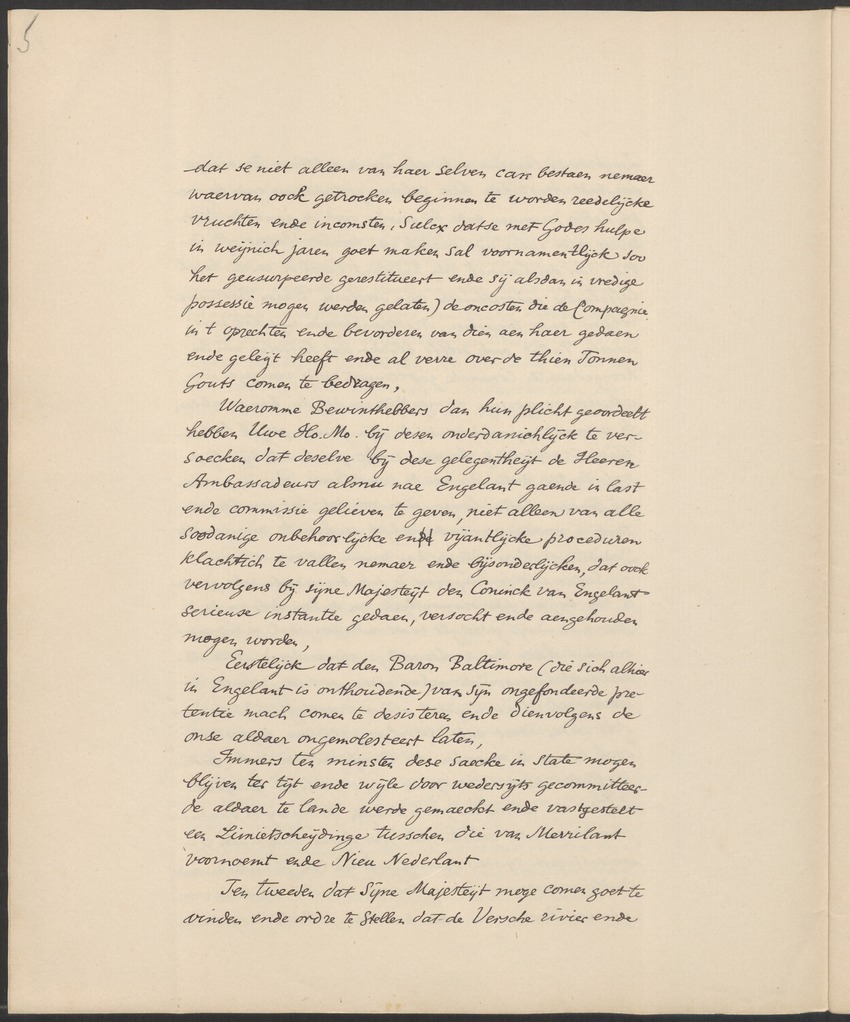 5
dat se niet alleen van haer selven can bestaen nemaer
waervan oock getrocken beginnen te worden reedelijcke
vruchten ende incomsten, Sulcx datse met Godes hulpe
in weijnich jaren goet maken sal voornamentlijck soo
het geusurpeerde gerestitueert ende sij alsdan in vredige
possessie mogen werden gelaten) de oncosten die de Compagnie
in t oprechten ende bevorderen van dien aen haer gedaen
ende geleijt heeft ende al verre over de thien Tonnen
Gouts comen te bedragen,
Waeromme Bewinthebbers dan hun plicht geoordeelt
hebben Uwe Ho. Mo. bij desen onderdanichlijck te ver-
soecken dat deselve bij dese gelegentheijt de Heeren
Ambassadeurs alsnu nae Engelant gaende in last
ende commissie gelieven te geven, niet alleen van alle
soodanige onbehoorlijcke ende vijantlijcke proceduren
klachtich te vallen nemaer ende bijsonderlijcken, dat oock
vervolgens bij sijne Majesteijt den Coninck van Engelant
serieuse instantie gedaen, versocht ende aengehouden
mogen worden,
Eerstelijck dat den Baron Baltimore (die sich alhier
in Engelant is onthoudende) van sijn ongefondeerde pre-
tentie mach comen te desisteren ende dienvolgens de
onse aldaer ongemolesteert laten,
Immers ten minsten dese saecke in state mogen
blijven ter tijt ende wijle door wedersijts gecommitteer-
de aldaer te lande werde gemaeckt ende vastgestelt
een Limietscheijdinge tusschen die van Merrilant
voornoemt ende Nieu Nederlant
Ten tweeden dat Sijne Majesteijt moge comen goet te
vinden ende ordre te stellen dat de Versche rivier ende